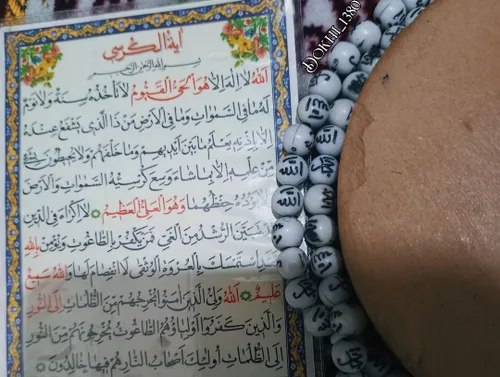 آية الكرسي
بسم الله الرحمن الرحيم
الله لا إله إلا هو الحي القيوم لا تأخذه سنة ولا نوم
له ما في السموات وما في الأرض من ذا الذي يشفع عنده
إلا بإذنه يعلم ما بين أيديهم وما خلفهم ولا يحيطون بشيء
من علمه إلا بما شاء وسع كرسيه السموات والأرض
ولا يؤده حفظهما وهو العلي العظيم لا إكراه في الدين
قد تبين الرشد من الغي فمن يكفر بالطاغوت ويؤمن بالله
فقد استمسك بالعروة الوثقى لا انفصام لها والله سميع
عليم الله ولي الذين آمنوا يخرجهم من الظلمات إلى النور
والذين كفروا أولياؤهم الطاغوت يخرجونهم من النور
إلى الظلمات أولئك أصحاب النار هم فيها خالدون
DOKHI_1380
الله
الله
الله